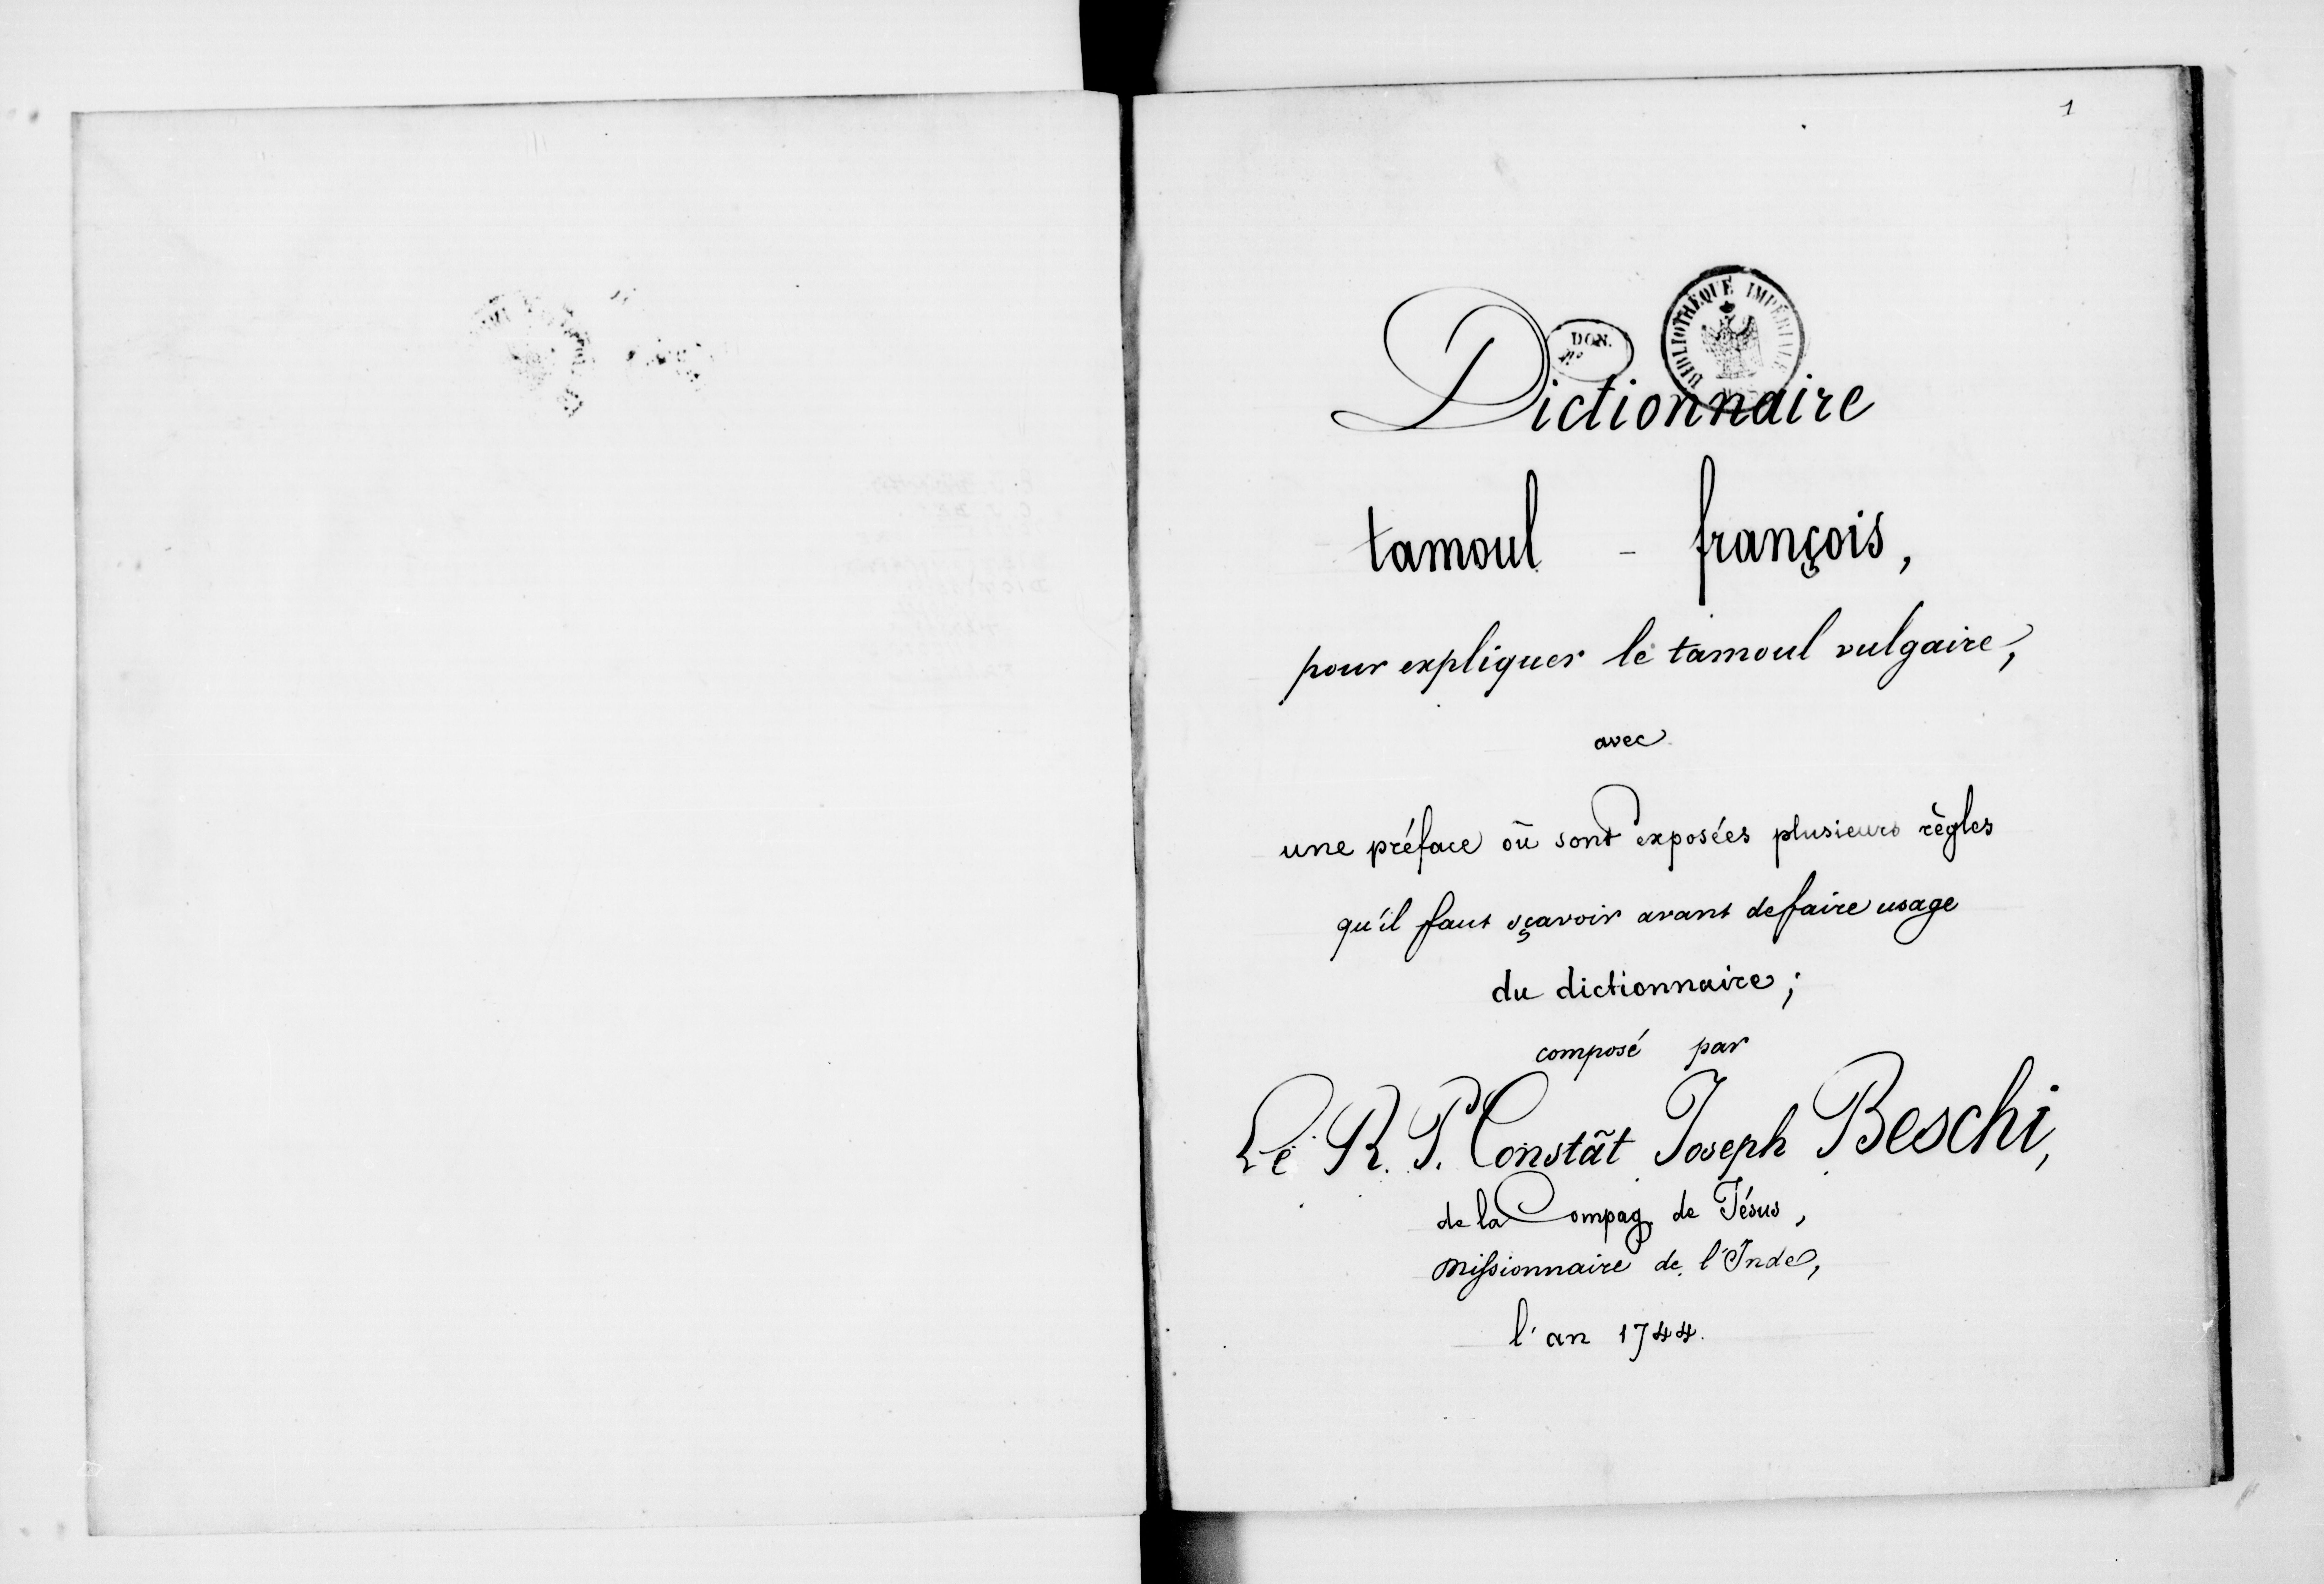 1
DON.
No
BIBLIOTHÈQUE IMPÉRIALE
Dictionnaire
tamoul - françois,
pour expliquer le tamoul vulgaire,
avec
une préface où sont exposées plusieurs règles
qu'il faut sçavoir avant de faire usage
du dictionnaire;
composé par
Le R. P. Constãt Joseph Beschi,
de la Compag. de Jésus,
missionnaire de l'Inde,
l'an 1744.